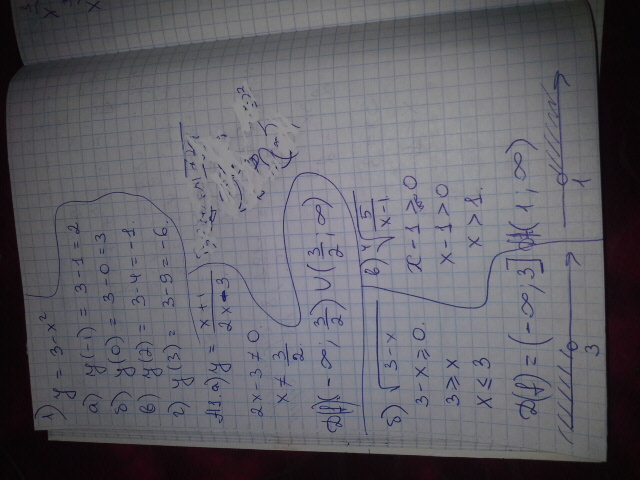 1) y = 3-x²
а) y(-1) = 3-1=2.
б) y(0) = 3-0=3
в) y(2) = 3-4=-1.
г) y(3) = 3-9=-6.
а) y = x+1 / 2x-3
2x-3≠0.
x≠ 3/2
D(f)(-∞; 3/2) ∪ (3/2; ∞)
б) √3-x
3-x≥0.
3≥x
x≤3
D(f) = (-∞; 3]
3
в) ⁴√5/x-1
x-1≥0
x-1>0
x>1.
(1; ∞)
1